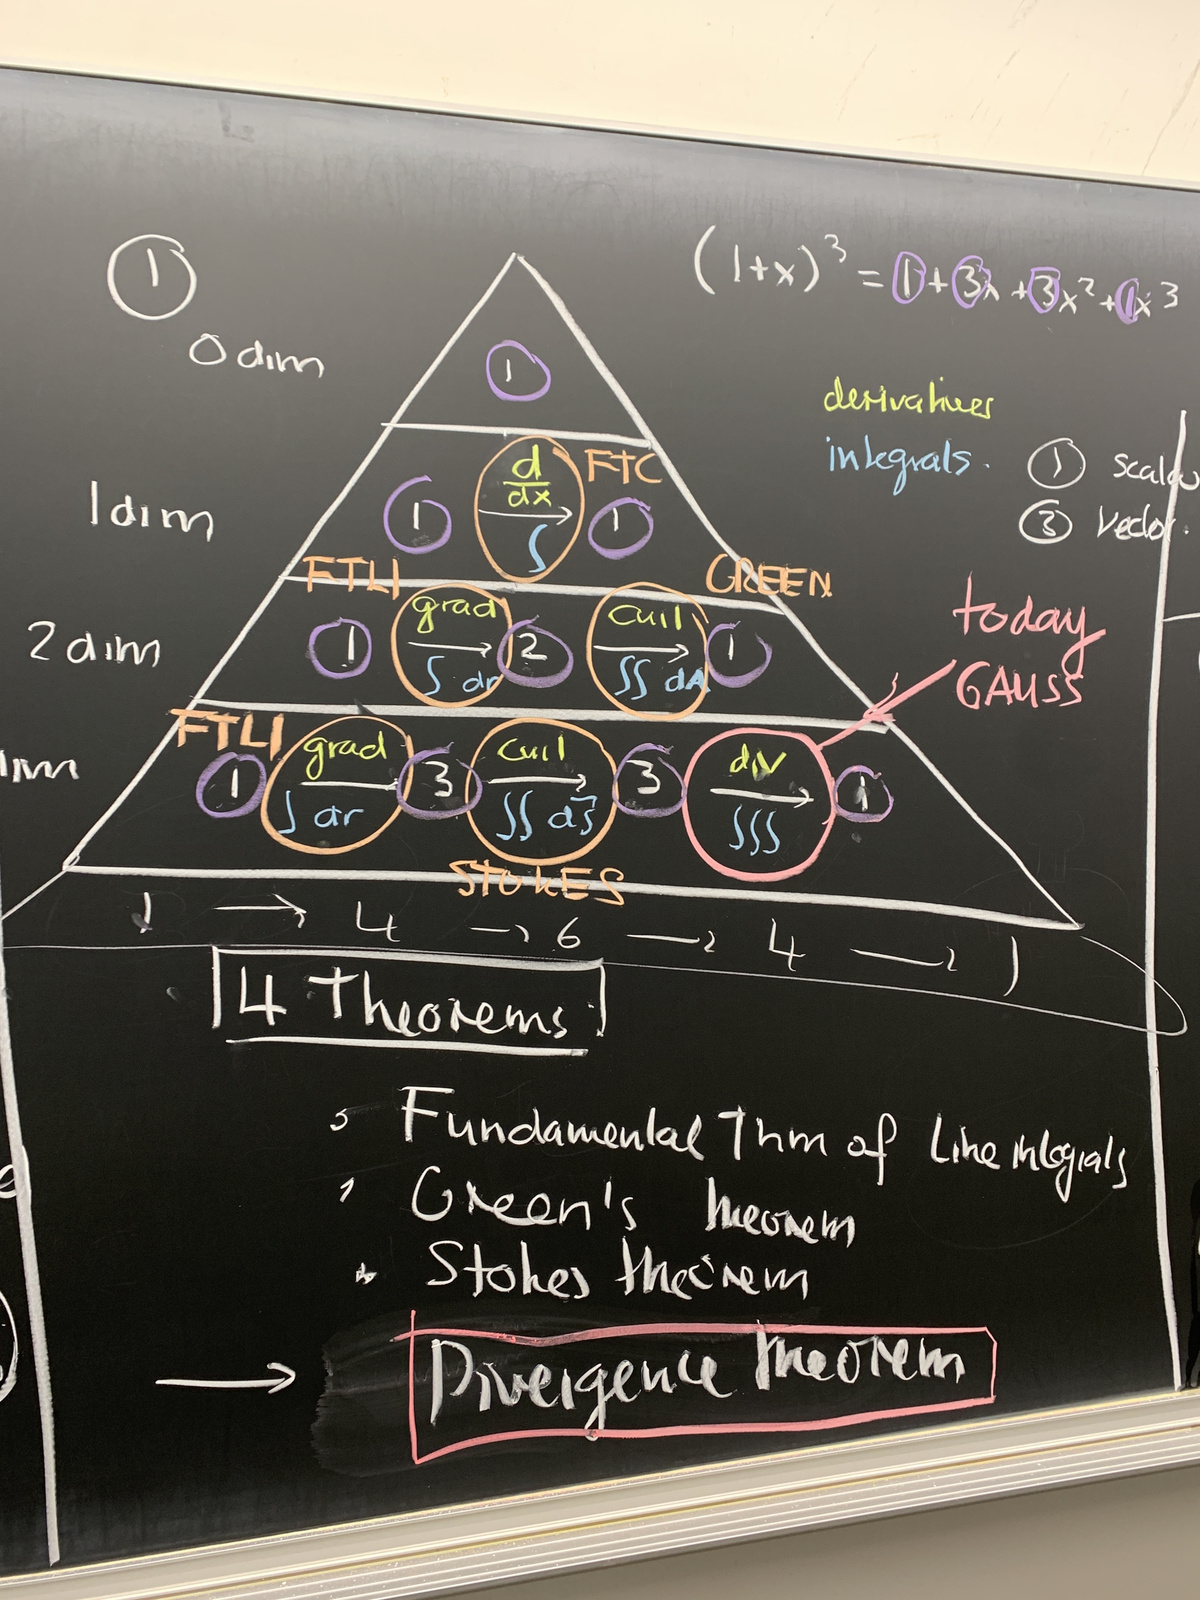 ①
(1+x)³ = 1 + 3x + 3x² + 1x³
0 dim
1
derivatives
integrals.
① scalar
③ vector.
1 dim
1 d/dx → ∫ 1
FTC
FTLI
GREEN
2 dim
1 grad → ∫ dr 2 curl → ∬ dA 1
today
GAUSS
FTLI
1 grad → ∫ dr 3 curl → ∬ dS 3 div → ∭ 1
STOKES
1 → 4 → 6 → 4 → 1
4 Theorems
Fundamental Thm of Line integrals
Green's theorem
Stokes theorem
→ Divergence theorem